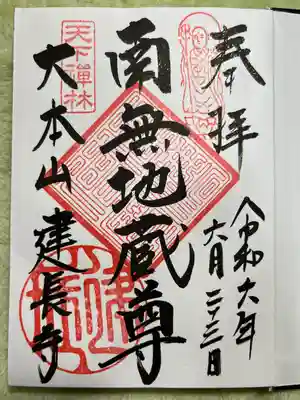 奉拝
令和六年
六月二十三日
南無地蔵尊
天下禅林
大本山 建長寺